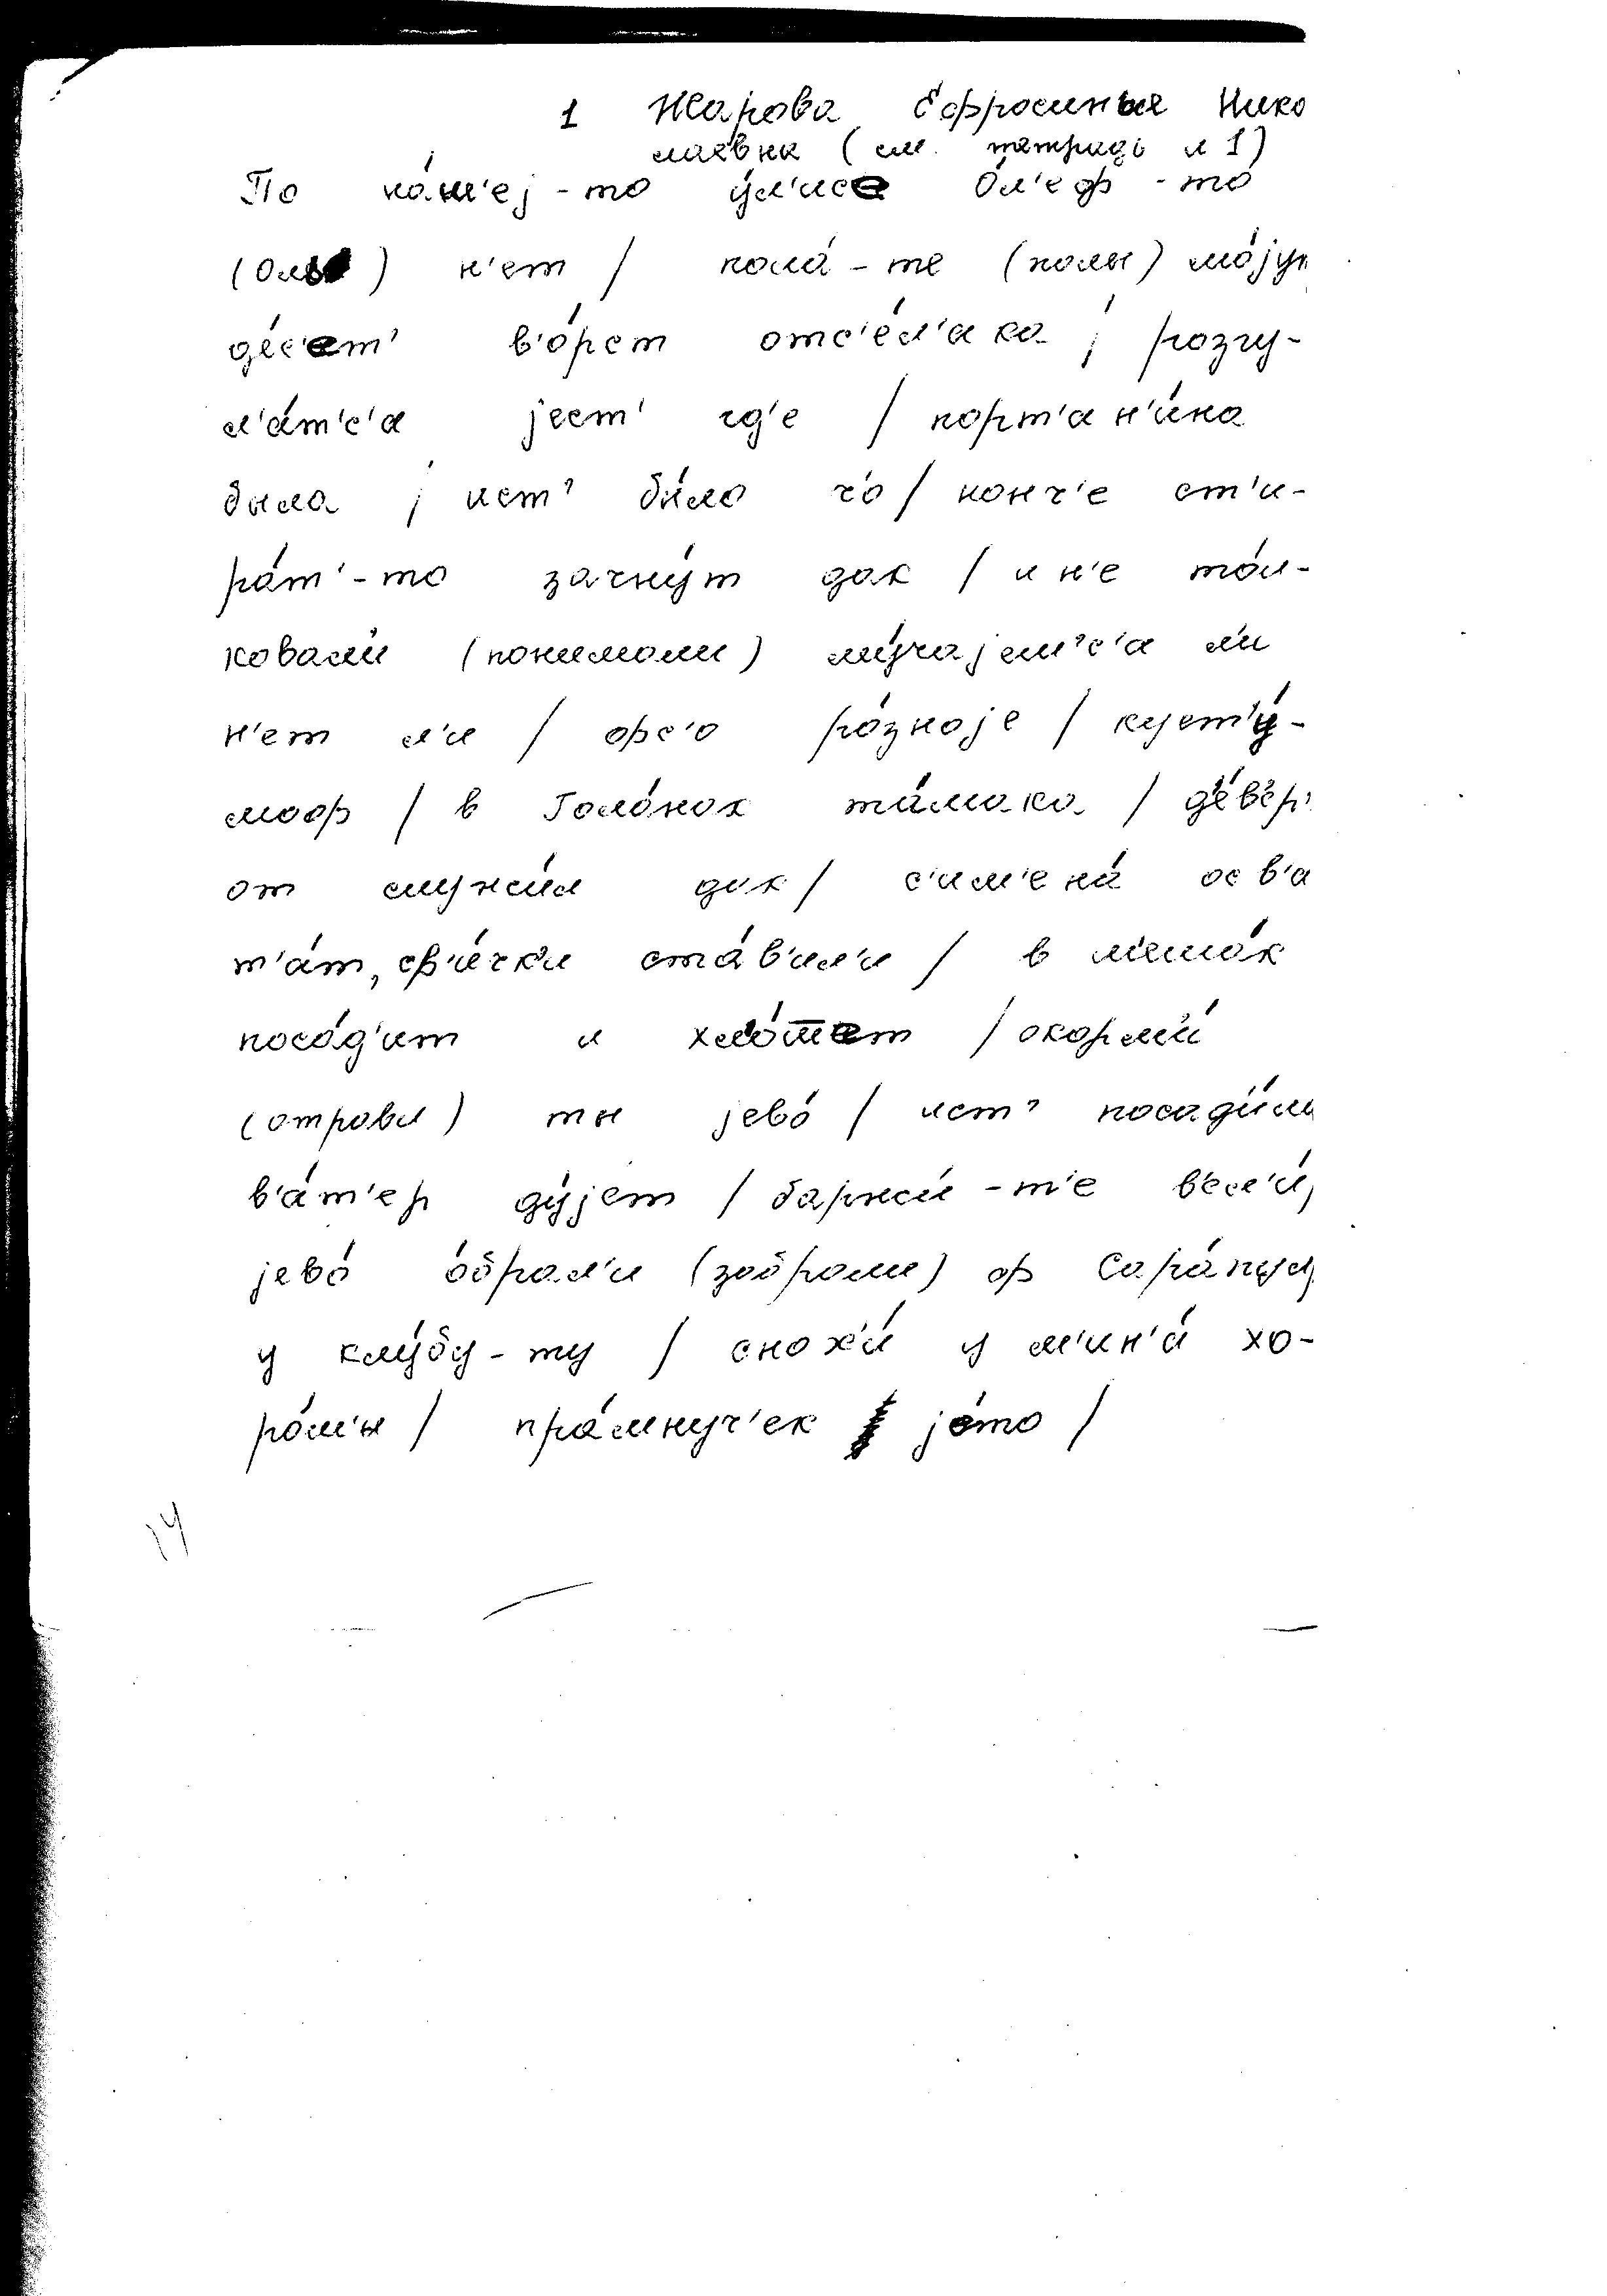 1 Жарова Ефросинья Нико
лаевна (см. тетрадь л 1)
По на́ш'еj-то у́л'исе О́л'еф-то
(Оль ) н'ет / пола́-те (полы) мо́jут
де́с'ет' в'о́рст отс'е́л'ака / розгу-
л'а́т'с'а jест' гд'е / порт'ан'и́на
была / ист' бы́ло ч'о / конч'е ст'и-
ра́т'-то зачну́т дак / и н'е то́л-
ковал'и (понимали) му́чаjем'с'а л'и
н'ет л'и / фс'о ра́зноjе / куст'у́-
моф / в Гола́нах та́мака / де́в'ер'
от служи́л дак / с'им'ена́ осв'а
т'а́т, св'и́чк'и ста́в'ил'и / в м'ешо́к
поса́д'ит и хло́пает / окорм'и́
(отрави) ты jево́ / ист' посад'и́л'и
в'а́т'ер ду́jет / баржи́-т'е в'ел'и́
jево́ о́брал'и (забрали) ф Сара́пул
у клу́бу-ту / снох'и́ у м'ин'а́ хо-
ро́мы / пра́мнуч'ек jе́то /
14